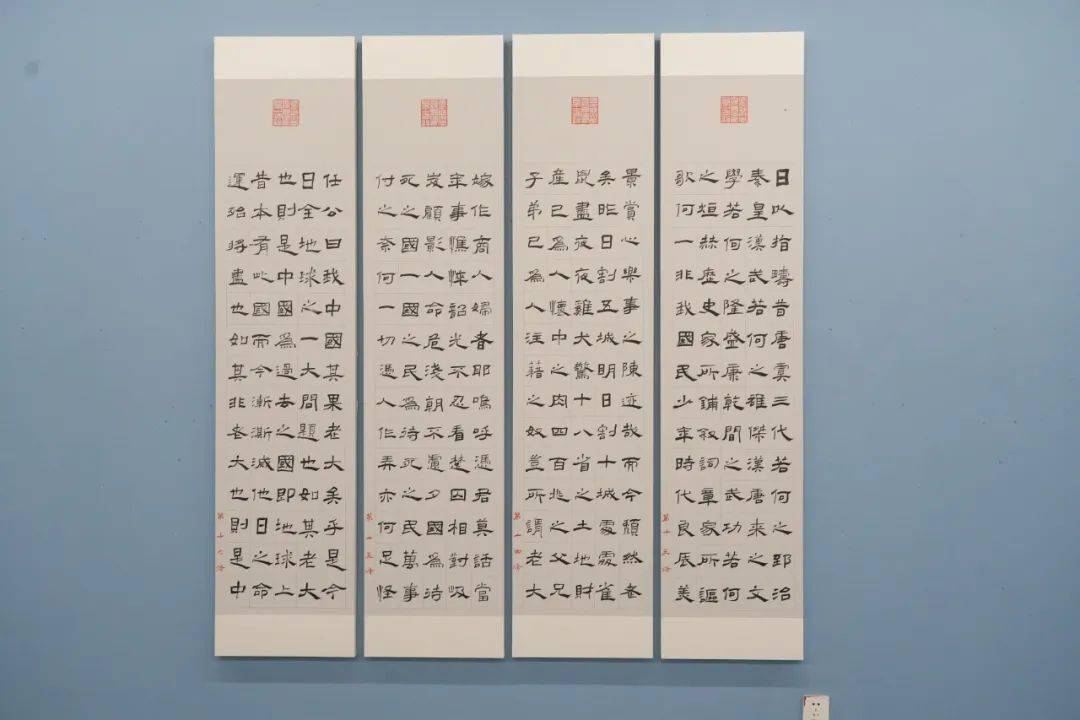 日以指疇昔唐虞三代若何之郅治
秦皇漢武若何之雄傑漢唐來之文
學若何之隆盛康乾間之武功若何
之垣赫歷史家所鋪叙詞章家所謳
歌何一非我國民少年時代良辰美
第十三
景賞心樂事之陳迹哉而今頹然老
矣昨日割五城明日割十城處處雀
鼠盡夜夜雞犬驚十八省之土地財
產已為人懷中之肉四百兆之父兄
子弟已為人注藉之奴豈所謂老大
第十四
嫁作商人婦者耶嗚呼憑君莫話當
年事憔悴韶光不忍看楚囚相對岌
岌顧影人命危淺朝不慮夕國為待
死之國一國之民為待死之民萬事
付之奈何一切憑人作弄亦何足怪
第十五
任公曰我中國其果老大矣乎是今
日全地球之一大問題也如其老大
也則是中國為過去之國即地球上
昔本有此國而今漸漸滅他日之命
運殆將盡也如其非老大也則是中
第十六